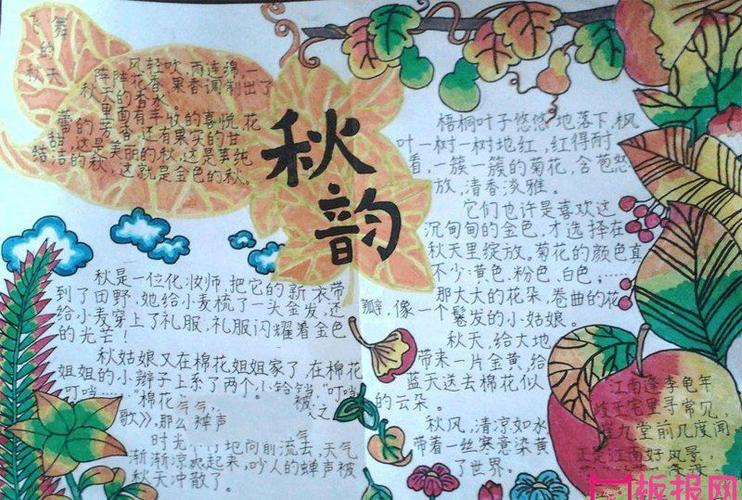 飞舞
的
秋天
风轻吹，雨连绵，
阵阵花香、果香调制出了
秋天的香水。
里面有丰收的喜悦，花
蕾的芳香，还有果实的甘
甜，这是美丽的秋，这是单纯
结洁的秋，这就是金色的秋。
秋韵
秋是一位化妆师，把它的新衣带
到了田野，她给小麦梳了一头金发，还
给小麦穿上了礼服，礼服闪耀着金色
的光芒！
秋姑娘又在棉花姐姐家了，在棉花
姐姐的小辫子上系了两个小铃铛，“叮当
叮当……”棉花
歌》，那么
时光
地向前流去，天气
渐渐凉起来，吵人的蝉声被
秋天冲散了。
梧桐叶子悠悠地落下，枫
叶一树一树地红，红得耐
看，一簇一簇的菊花，含苞怒
放，清香淡雅。
它们也许是喜欢这
沉甸甸的金色，才选择在
秋天里绽放。菊花的颜色真
不少：黄色、粉色、白色……
那大大的花朵，卷曲的花
瓣，像一个鬈发的小姑娘。
秋天，给大地
带来一片金黄，给
蓝天送去棉花似
的云朵。
秋风，清凉如水
带着一丝寒意染黄
了世界。
江南逢李龟年
岐王宅里寻常见，
崔九堂前几度闻
正是江南好风景，
板报网